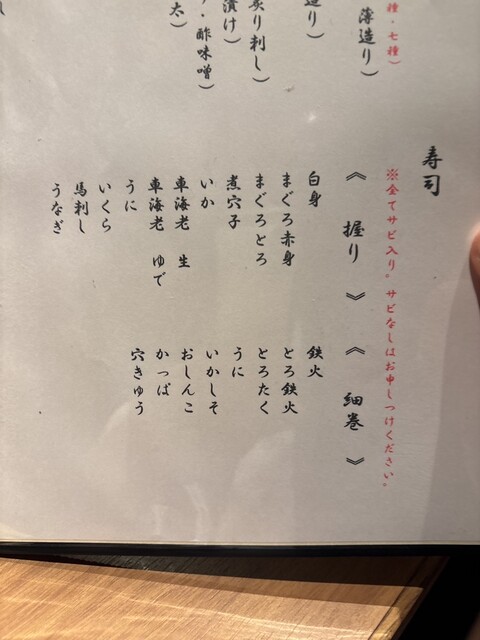 種・七種）
薄造り）
造り）
炙り刺し）
漬け）
・酢味噌）
太）
寿司
※全てサビ入り。サビなしはお申しつけください。
《 握り 》
白身
まぐろ赤身
まぐろとろ
煮穴子
いか
車海老 生
車海老 ゆで
うに
いくら
馬刺し
うなぎ
《 細巻 》
鉄火
とろ鉄火
とろたく
うに
いかしそ
おしんこ
かっぱ
穴きゅう